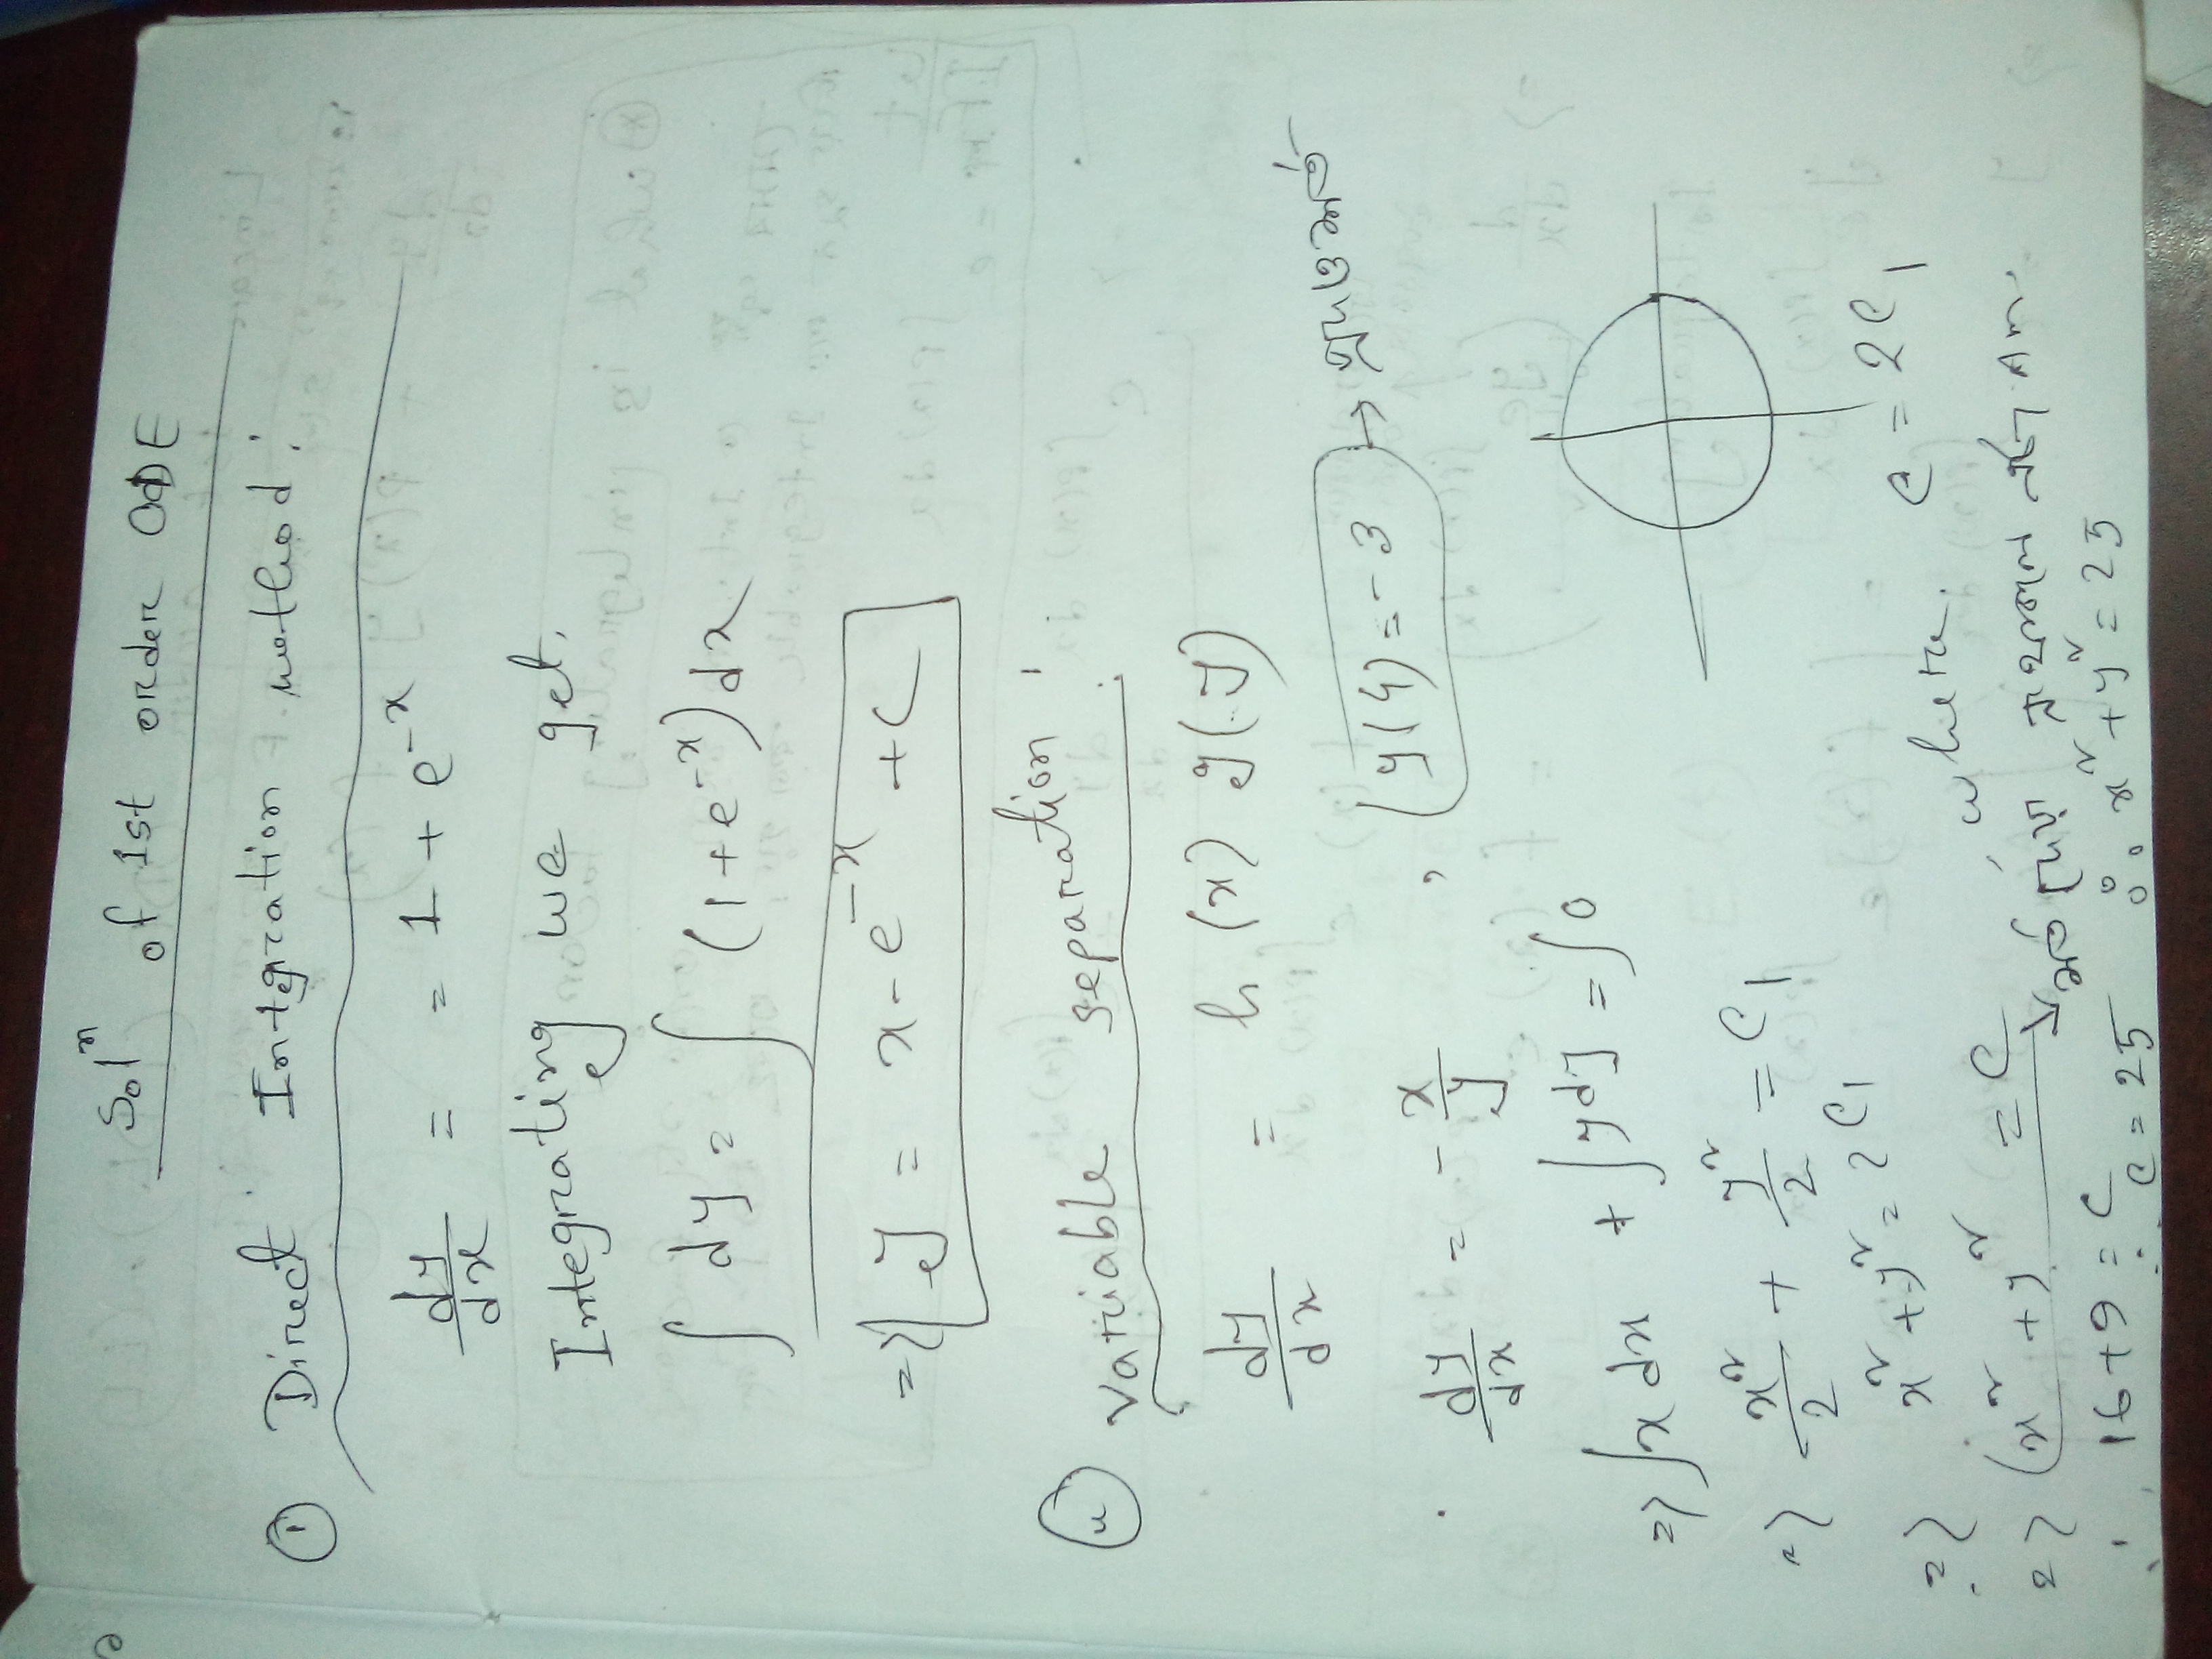 Solⁿ of 1st order ODE
① Direct Integration method:
dy/dx = = 1 + e^-x
Integrating we get,
∫ dy = ∫ (1 + e^-x) dx
=> y = x - e^-x + C
② Variable separation:
dy/dx = h (x) g (y)
dy/dx = - x/y , y(4) = -3 →
=> ∫ x dx + ∫ y dy = ∫ 0
=> x²/2 + y²/2 = C₁
=> x² + y² = 2 C₁
=> x² + y² = C , where. C = 2C₁
∴ 16 + 9 = C ∴ C = 25 ∴ x² + y² = 25